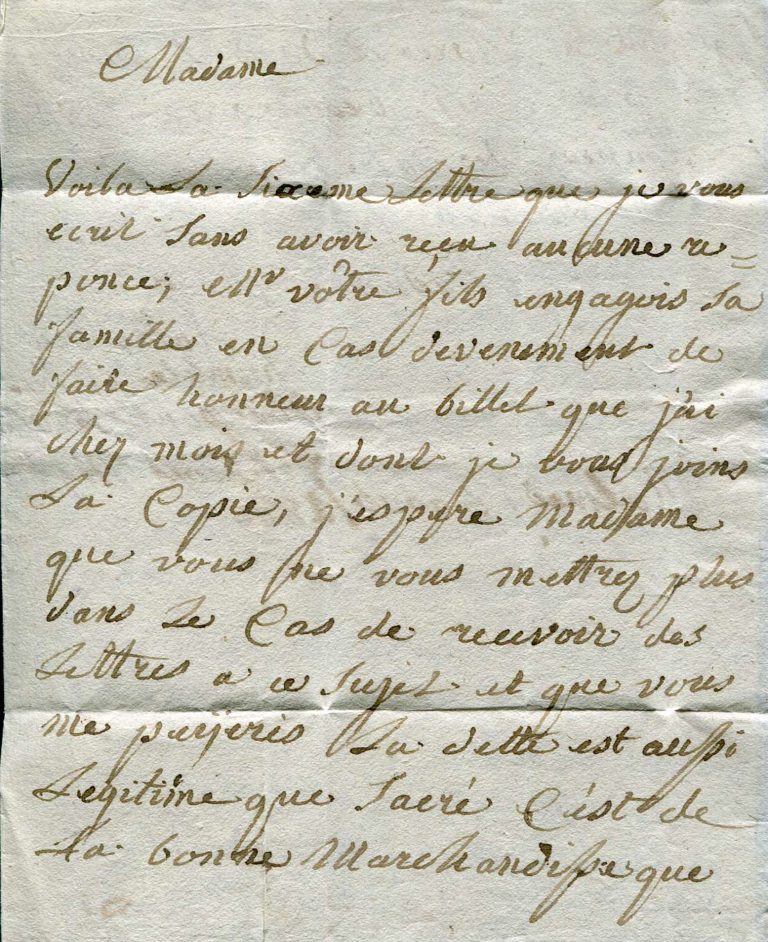 Madame
Voila La Sixeme Lettre que je vous
ecrit Sans avoir reçeu aucune re=
ponce; et Mr vôtre fils engageois Sa
famille en Cas d'evenement de
faire honneur au billet que j'ai
chez mois et dont je vous joins
La Copie, j'espere Madame
que vous ne vous mettrez plus
dans Le Cas de recevoir des
Lettres a ce Sujet et que vous
me payeris La dette est aussi
Legitime que Sacré C'est de
La bonne Marchandisse que